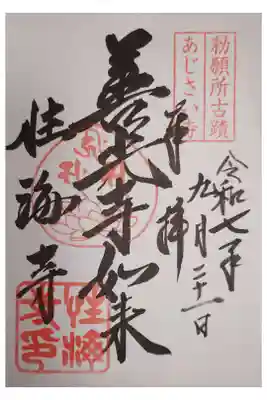 勅願所古蹟
あじさい寺
令和七年
九月二十一日
奉拝
善光寺如来
性海寺
性海寺印